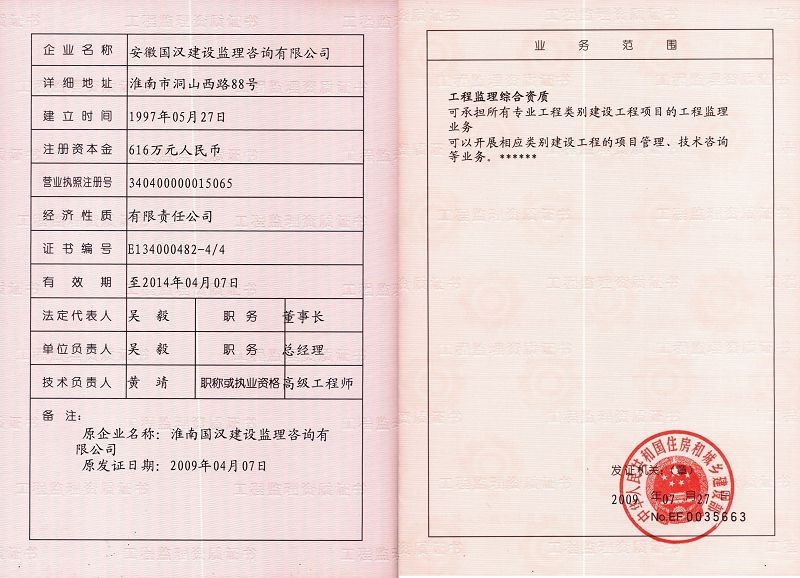 企业名称 安徽国汉建设监理咨询有限公司
详细地址 淮南市洞山西路88号
建立时间 1997年05月27日
注册资本金 616万元人民币
营业执照注册号 340400000015065
经济性质 有限责任公司
证书编号 E134000482-4/4
有效期 至2014年04月07日
法定代表人 吴毅 职务 董事长
单位负责人 吴毅 职务 总经理
技术负责人 黄靖 职称或执业资格 高级工程师
备注:
原企业名称：淮南国汉建设监理咨询有
限公司
原发证日期：2009年04月07日
业务范围
工程监理综合资质
可承担所有专业工程类别建设工程项目的工程监理
业务
可以开展相应类别建设工程的项目管理、技术咨询
等业务。******
发证机关：(章)
2009年07月27日
No.EF 0035663
中华人民共和国住房和城乡建设部
工程监理资质证书